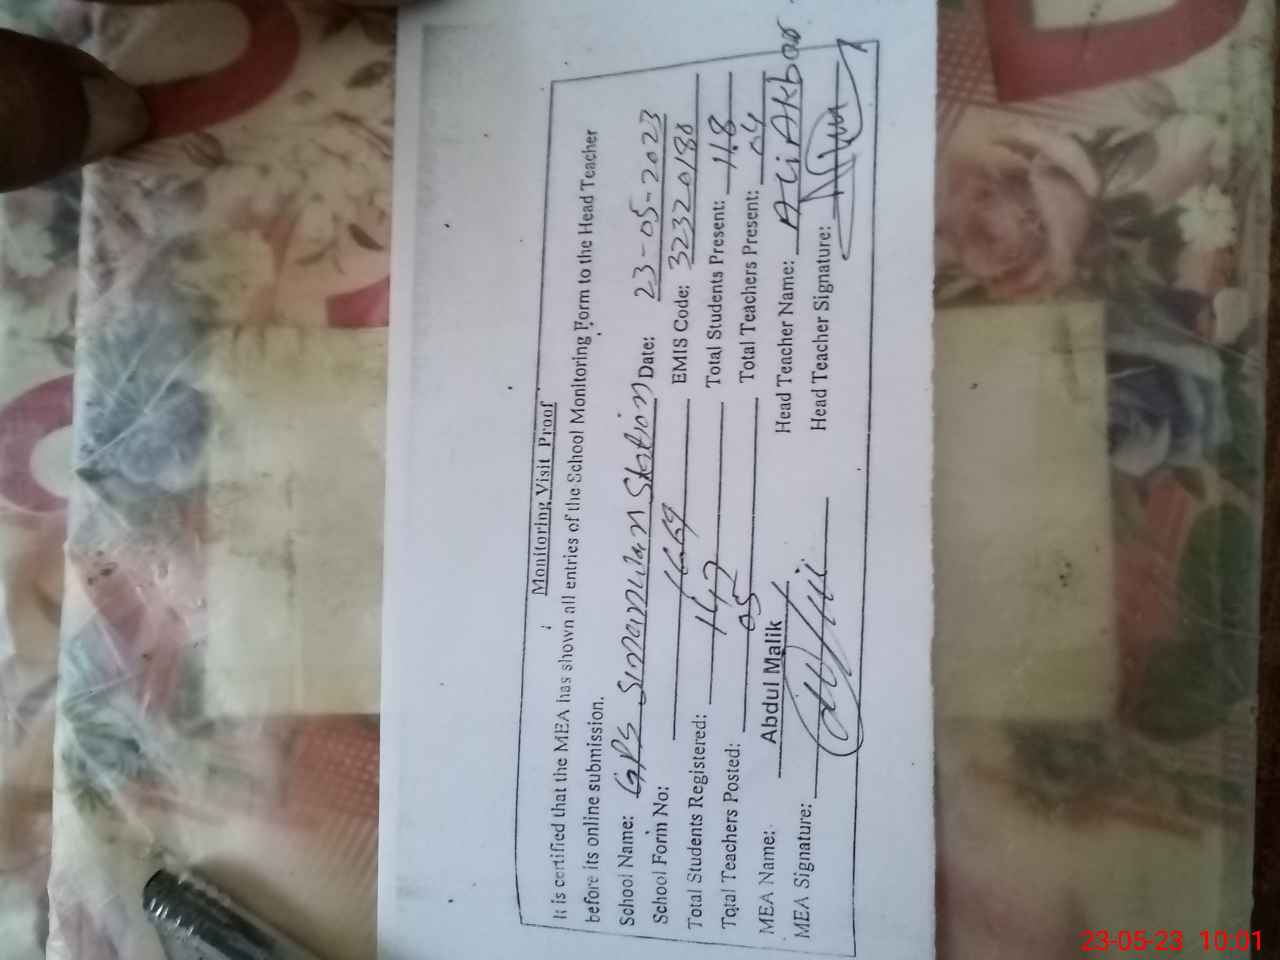 Monitoring Visit Proof
It is certified that the MEA has shown all entries of the School Monitoring Form to the Head Teacher
before its online submission.
School Name: GPS Sinanwan Station Date: 23-05-2023
School Form No: EMIS Code: 32320180
Total Students Registered: 147 Total Students Present: 118
Total Teachers Posted: 05 Total Teachers Present: 04
MEA Name: Abdul Malik Head Teacher Name: Ali Akbar
MEA Signature: Head Teacher Signature:
23-05-23 10:01